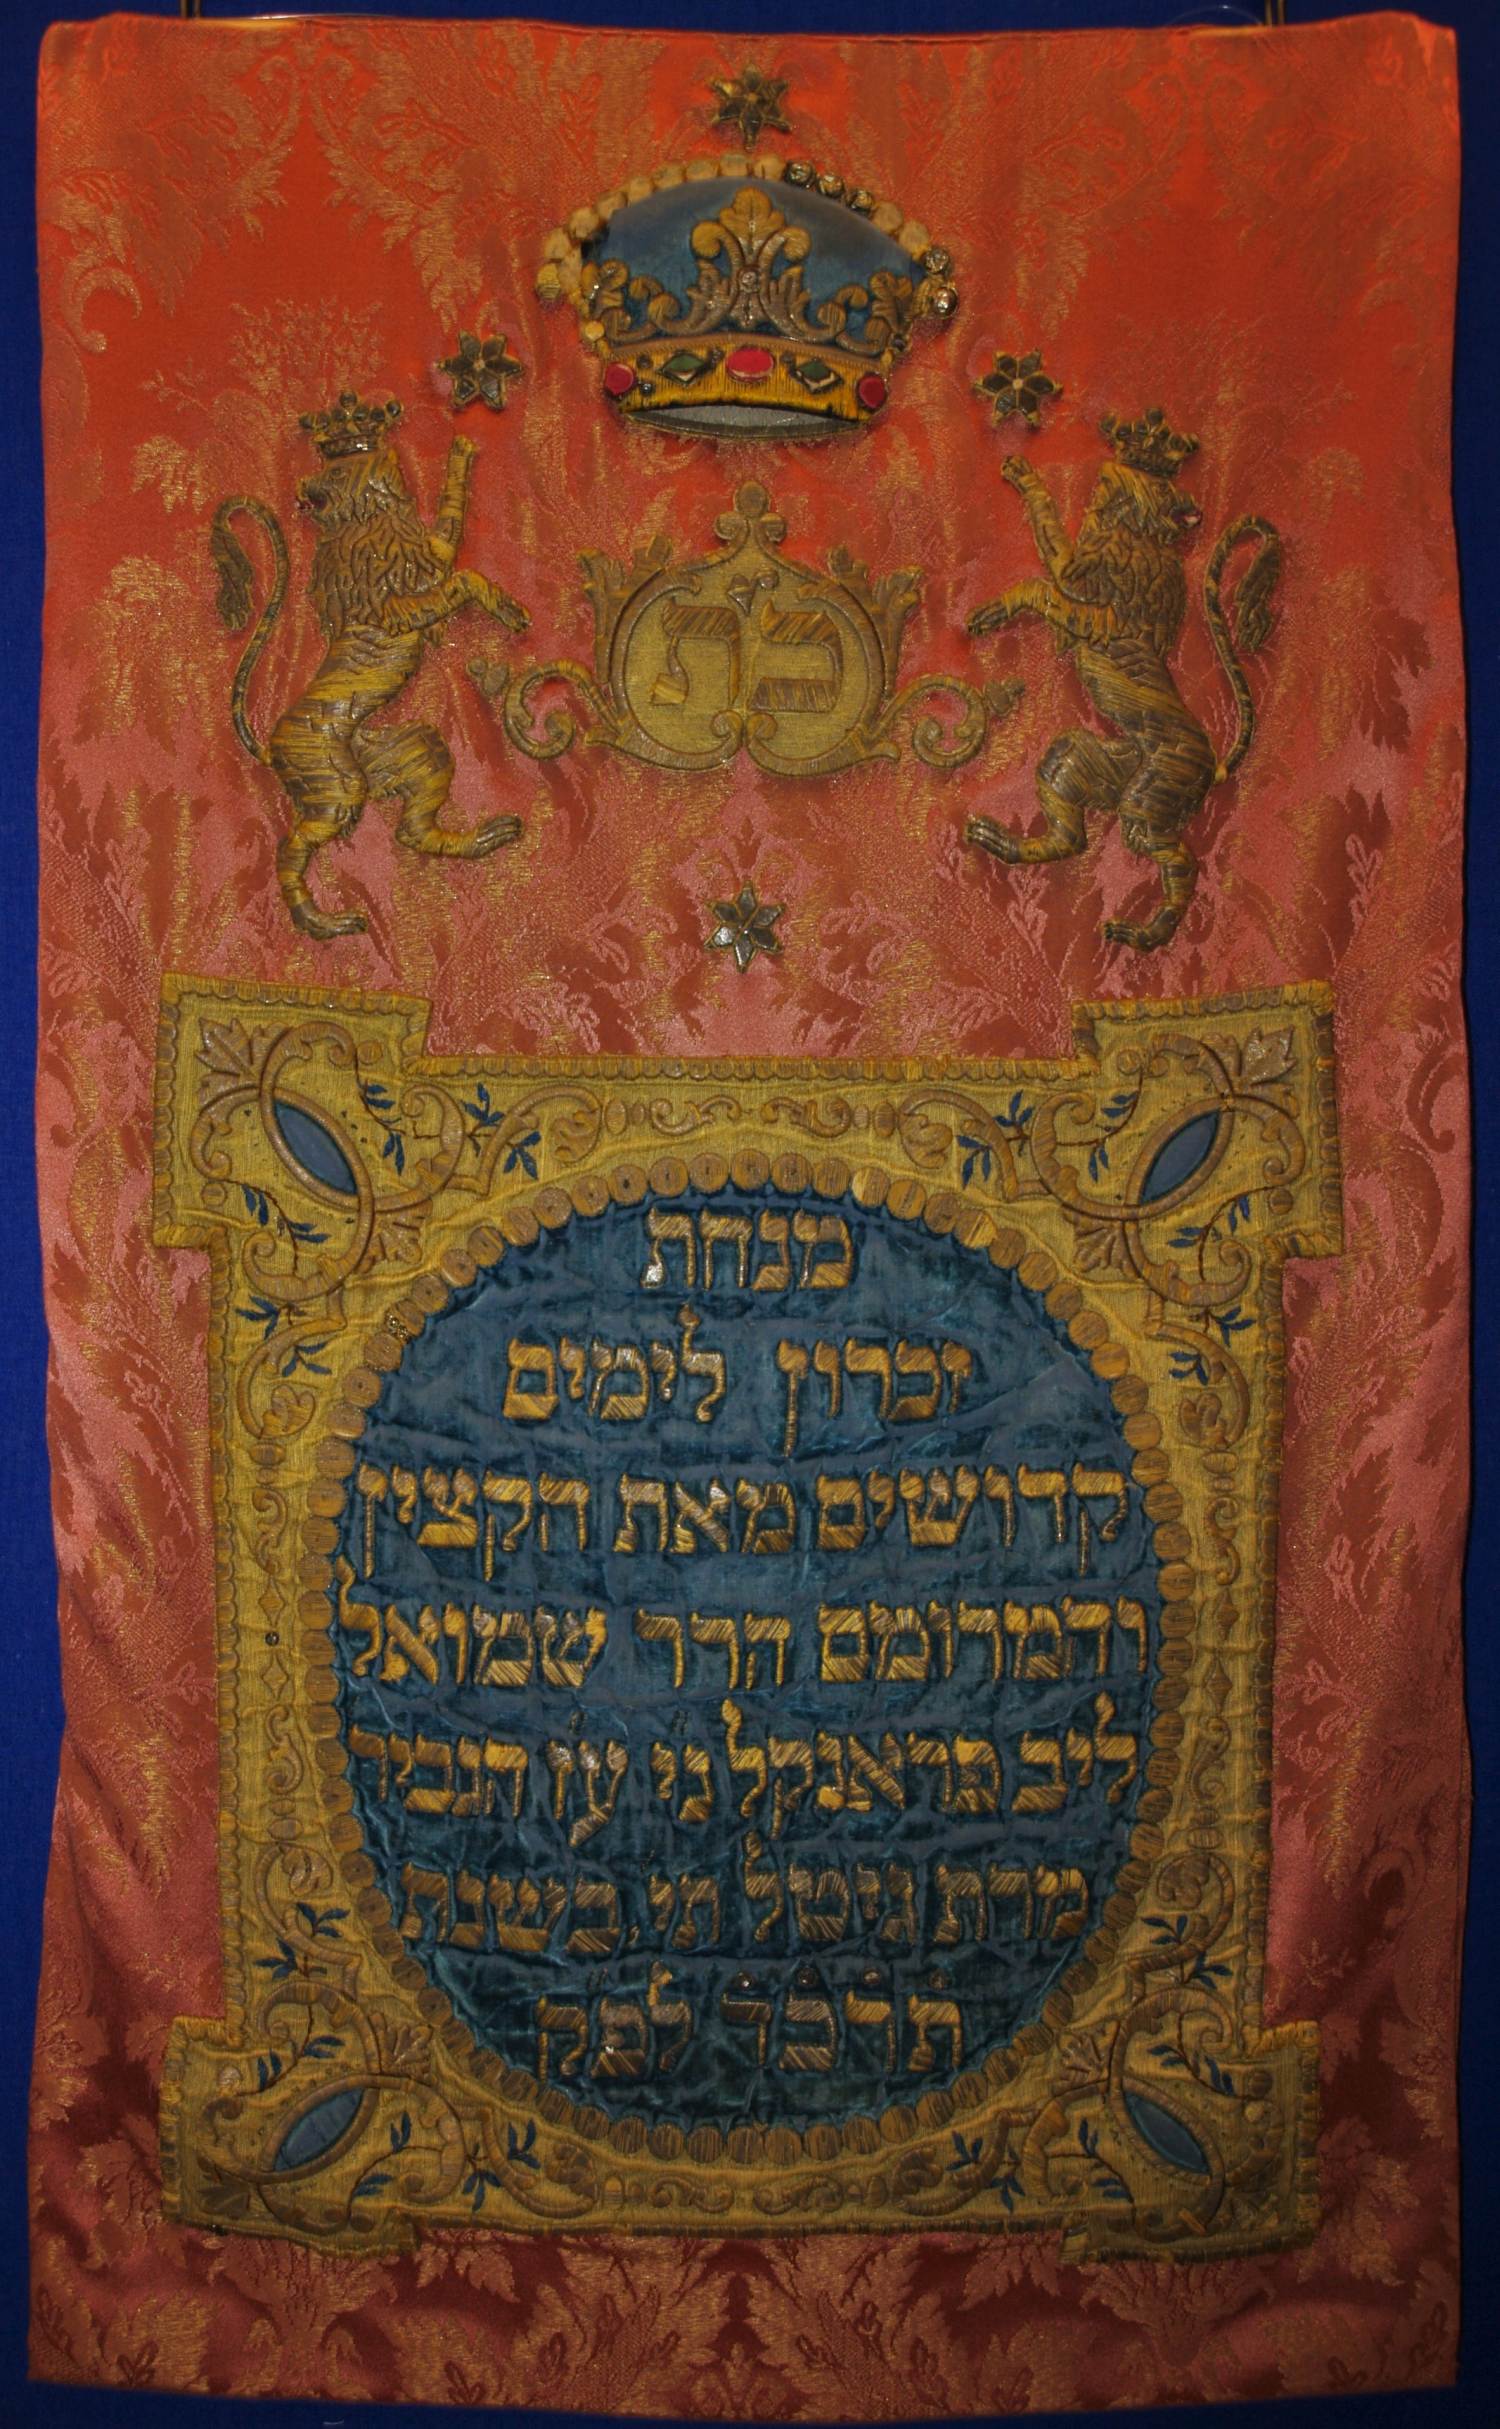 כת
מנחת
זכרון לימים
קדושים מאת הקצין
והמרומם הרר שמואל
ליב פראנקל ני עז הגביר
מרת גיטל תי בשנת
תרכד לפק